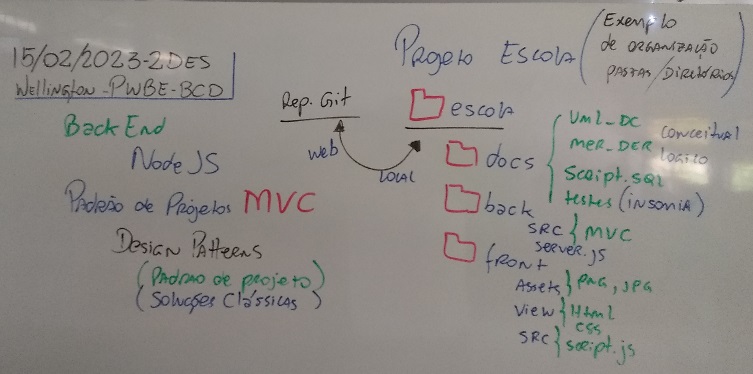 15/02/2023-2DES
Wellington-PWBE-BCD
BackEnd
NodeJS
Padrão de Projetos MVC
Design Patterns
(Padrao de projeto)
(Soluções Clássicas)
Rep. Git
Web
Local
Projeto Escola (Exemplo
de organização
pastas/diretórios)
escola
docs
Uml_DC conceitual
MER_DER logico
Script.sql
testes (insomia)
back
SRC } MVC
Server.js
front
Assets } png, jpg
View } Html
css
SRC } script.js